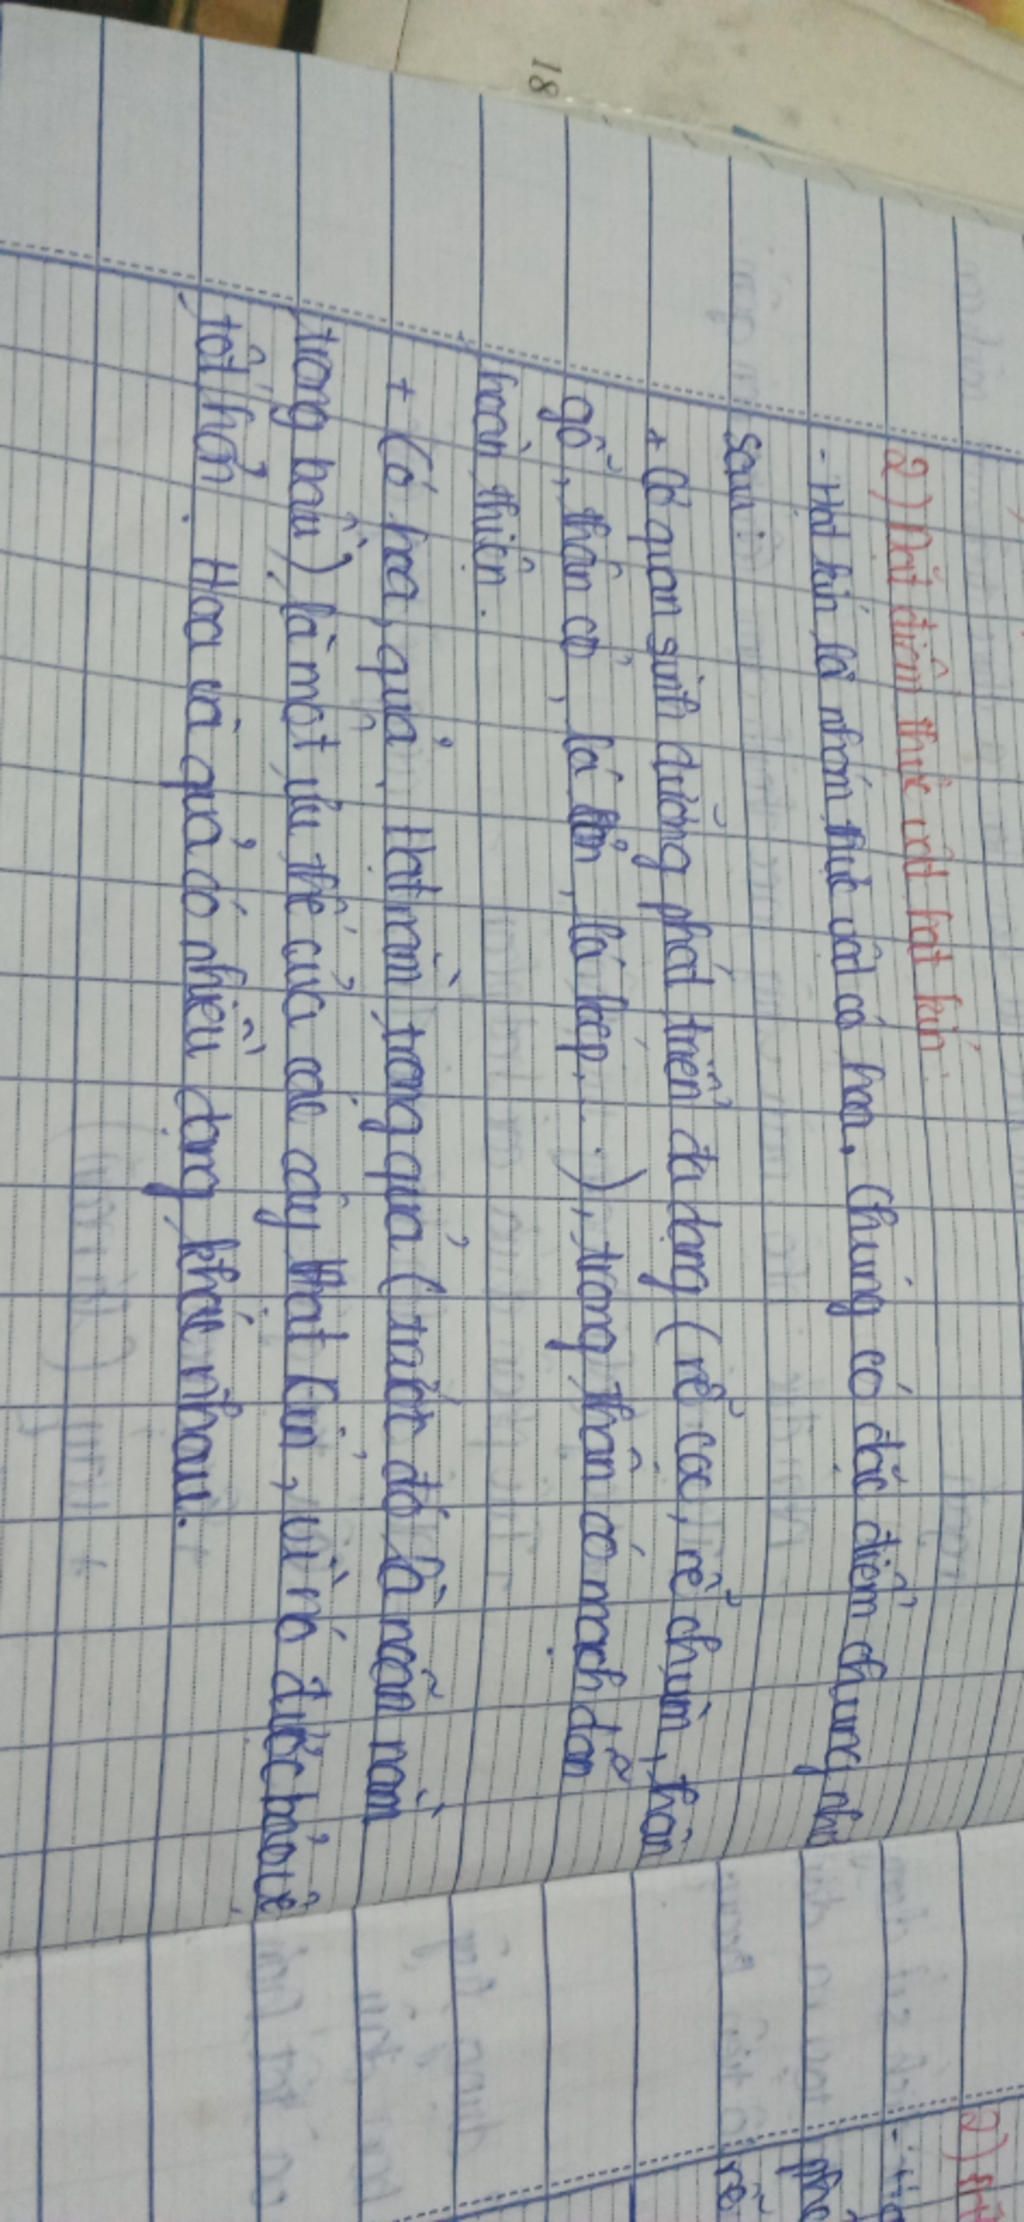 18
2) Đặt điểm thực vật hạt kín.
- Hạt kín là nhóm thực vật có hoa. Chúng có đặc điểm chung như
sau:
+ Cơ quan sinh dưỡng phát triển đa dạng (rễ cọc, rễ chùm, thân
gỗ, thân cỏ, lá đơn, lá kép,...), trong thân có mạch dẫn
hoàn thiện.
+ Có hoa, quả. Hạt nằm trong quả (trước đó là noãn nằm
trong bầu) là một ưu thế của các cây hạt kín, vì nó được bảo vệ
tốt hơn. Hoa và quả có nhiều dạng khác nhau.
2)